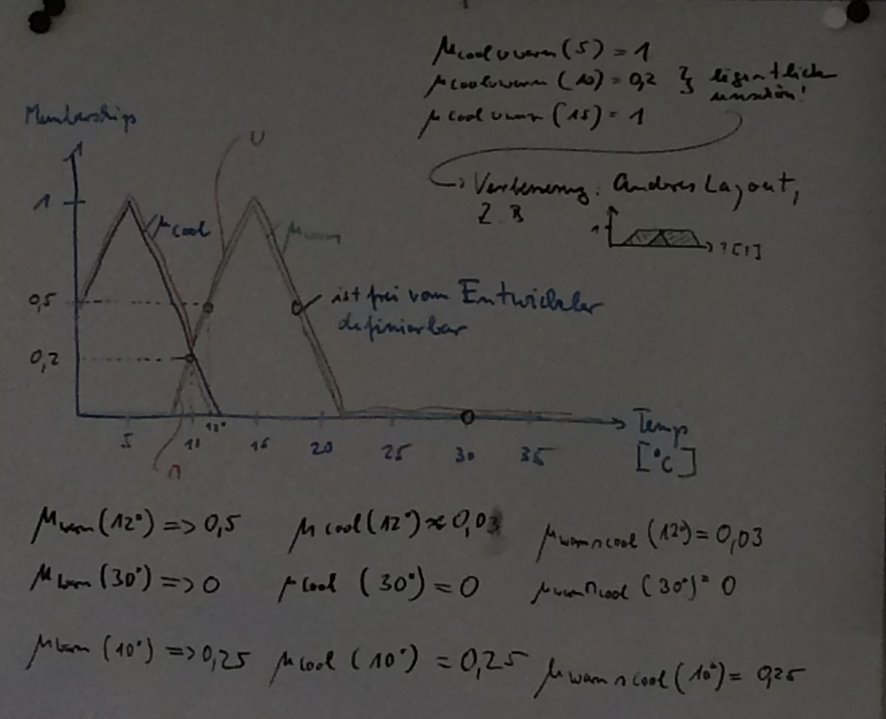 μ cool ∪ warm (5) = 1
μ cool ∪ warm (10) = 0,2 } eigentlich unschön!
μ cool ∪ warm (15) = 1
→ Verbesserung: Andres Layout,
z B
1 [°C]
Memberships
∪
1
μ cool
μ warm
0,5
ist frei vom Entwickler
definierbar
0,2
Temp
[°C]
5 10 12° 15 20 25 30 35
∩
μ warm (12°) => 0,5 μ cool (12°) ≈ 0,03 μ warm ∩ cool (12°) = 0,03
μ warm (30°) => 0 μ cool (30°) = 0 μ warm ∩ cool (30°) = 0
μ warm (10°) => 0,25 μ cool (10°) = 0,25 μ warm ∩ cool (10°) = 0,25